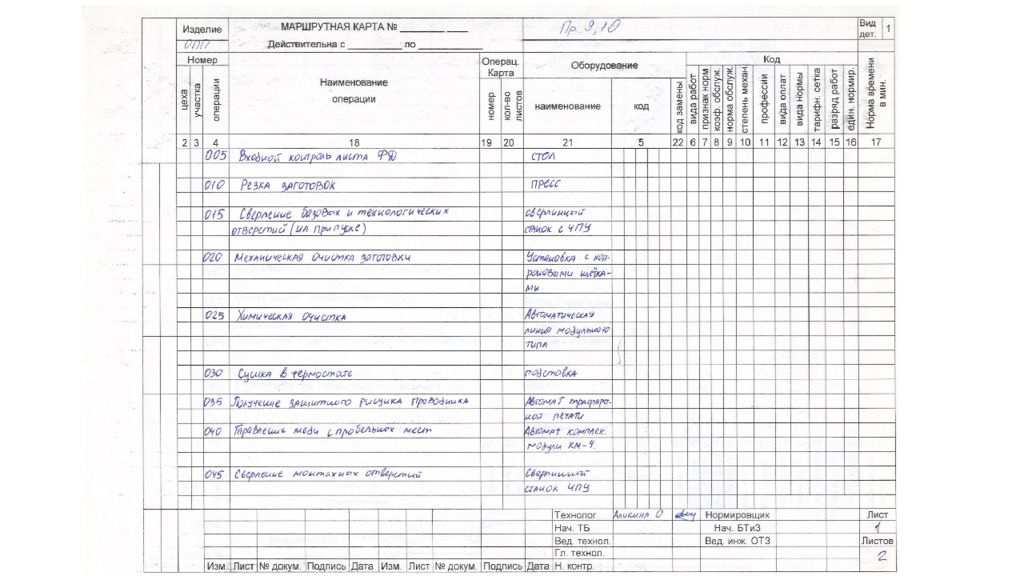 Изделие
МАРШРУТНАЯ КАРТА № ________ ____
Пр. 9,10
Вид дет. 1
ОПП
Действительна с ________ по ________
Номер
Операц. Карта
Оборудование
Код
цеха
участка
операции
Наименование операции
номер
кол-во листов
наименование
код
код замены
вида работ
признак норм
коэф. обслуж.
норма обслуж.
степень механ
профессии
вида оплат
вида нормы
тарифн. сетка
разряд работ
един. нормир.
Норма времени в мин.
2 3 4 18 19 20 21 5 22 6 7 8 9 10 11 12 13 14 15 16 17
005 Входной контроль листа ФД стол
010 Резка заготовок пресс
015 Сверление базовых и технологических сверлильный
отверстий (на припуске) станок с ЧПУ
020 Механическая очистка заготовки Установка с кап-
роновыми щётка-
ми
025 Химическая очистка Автоматическая
линия модульного
типа
030 Сушка в термостате подставка
035 Получение защитного рисунка проводника Автомат трафарет-
ной печати
040 Травление меди с пробельных мест Автомат комплек.
модули КМ-4.
045 Сверление монтажных отверстий Сверлильный
станок ЧПУ
Технолог Аликина О Нормировщик Лист
Нач. ТБ Нач. БТиЗ 1
Вед. технол. Вед. инж. ОТЗ Листов
Гл. технол. 2
Изм. Лист № докум. Подпись Дата Изм. Лист № докум. Подпись Дата Н. контр.